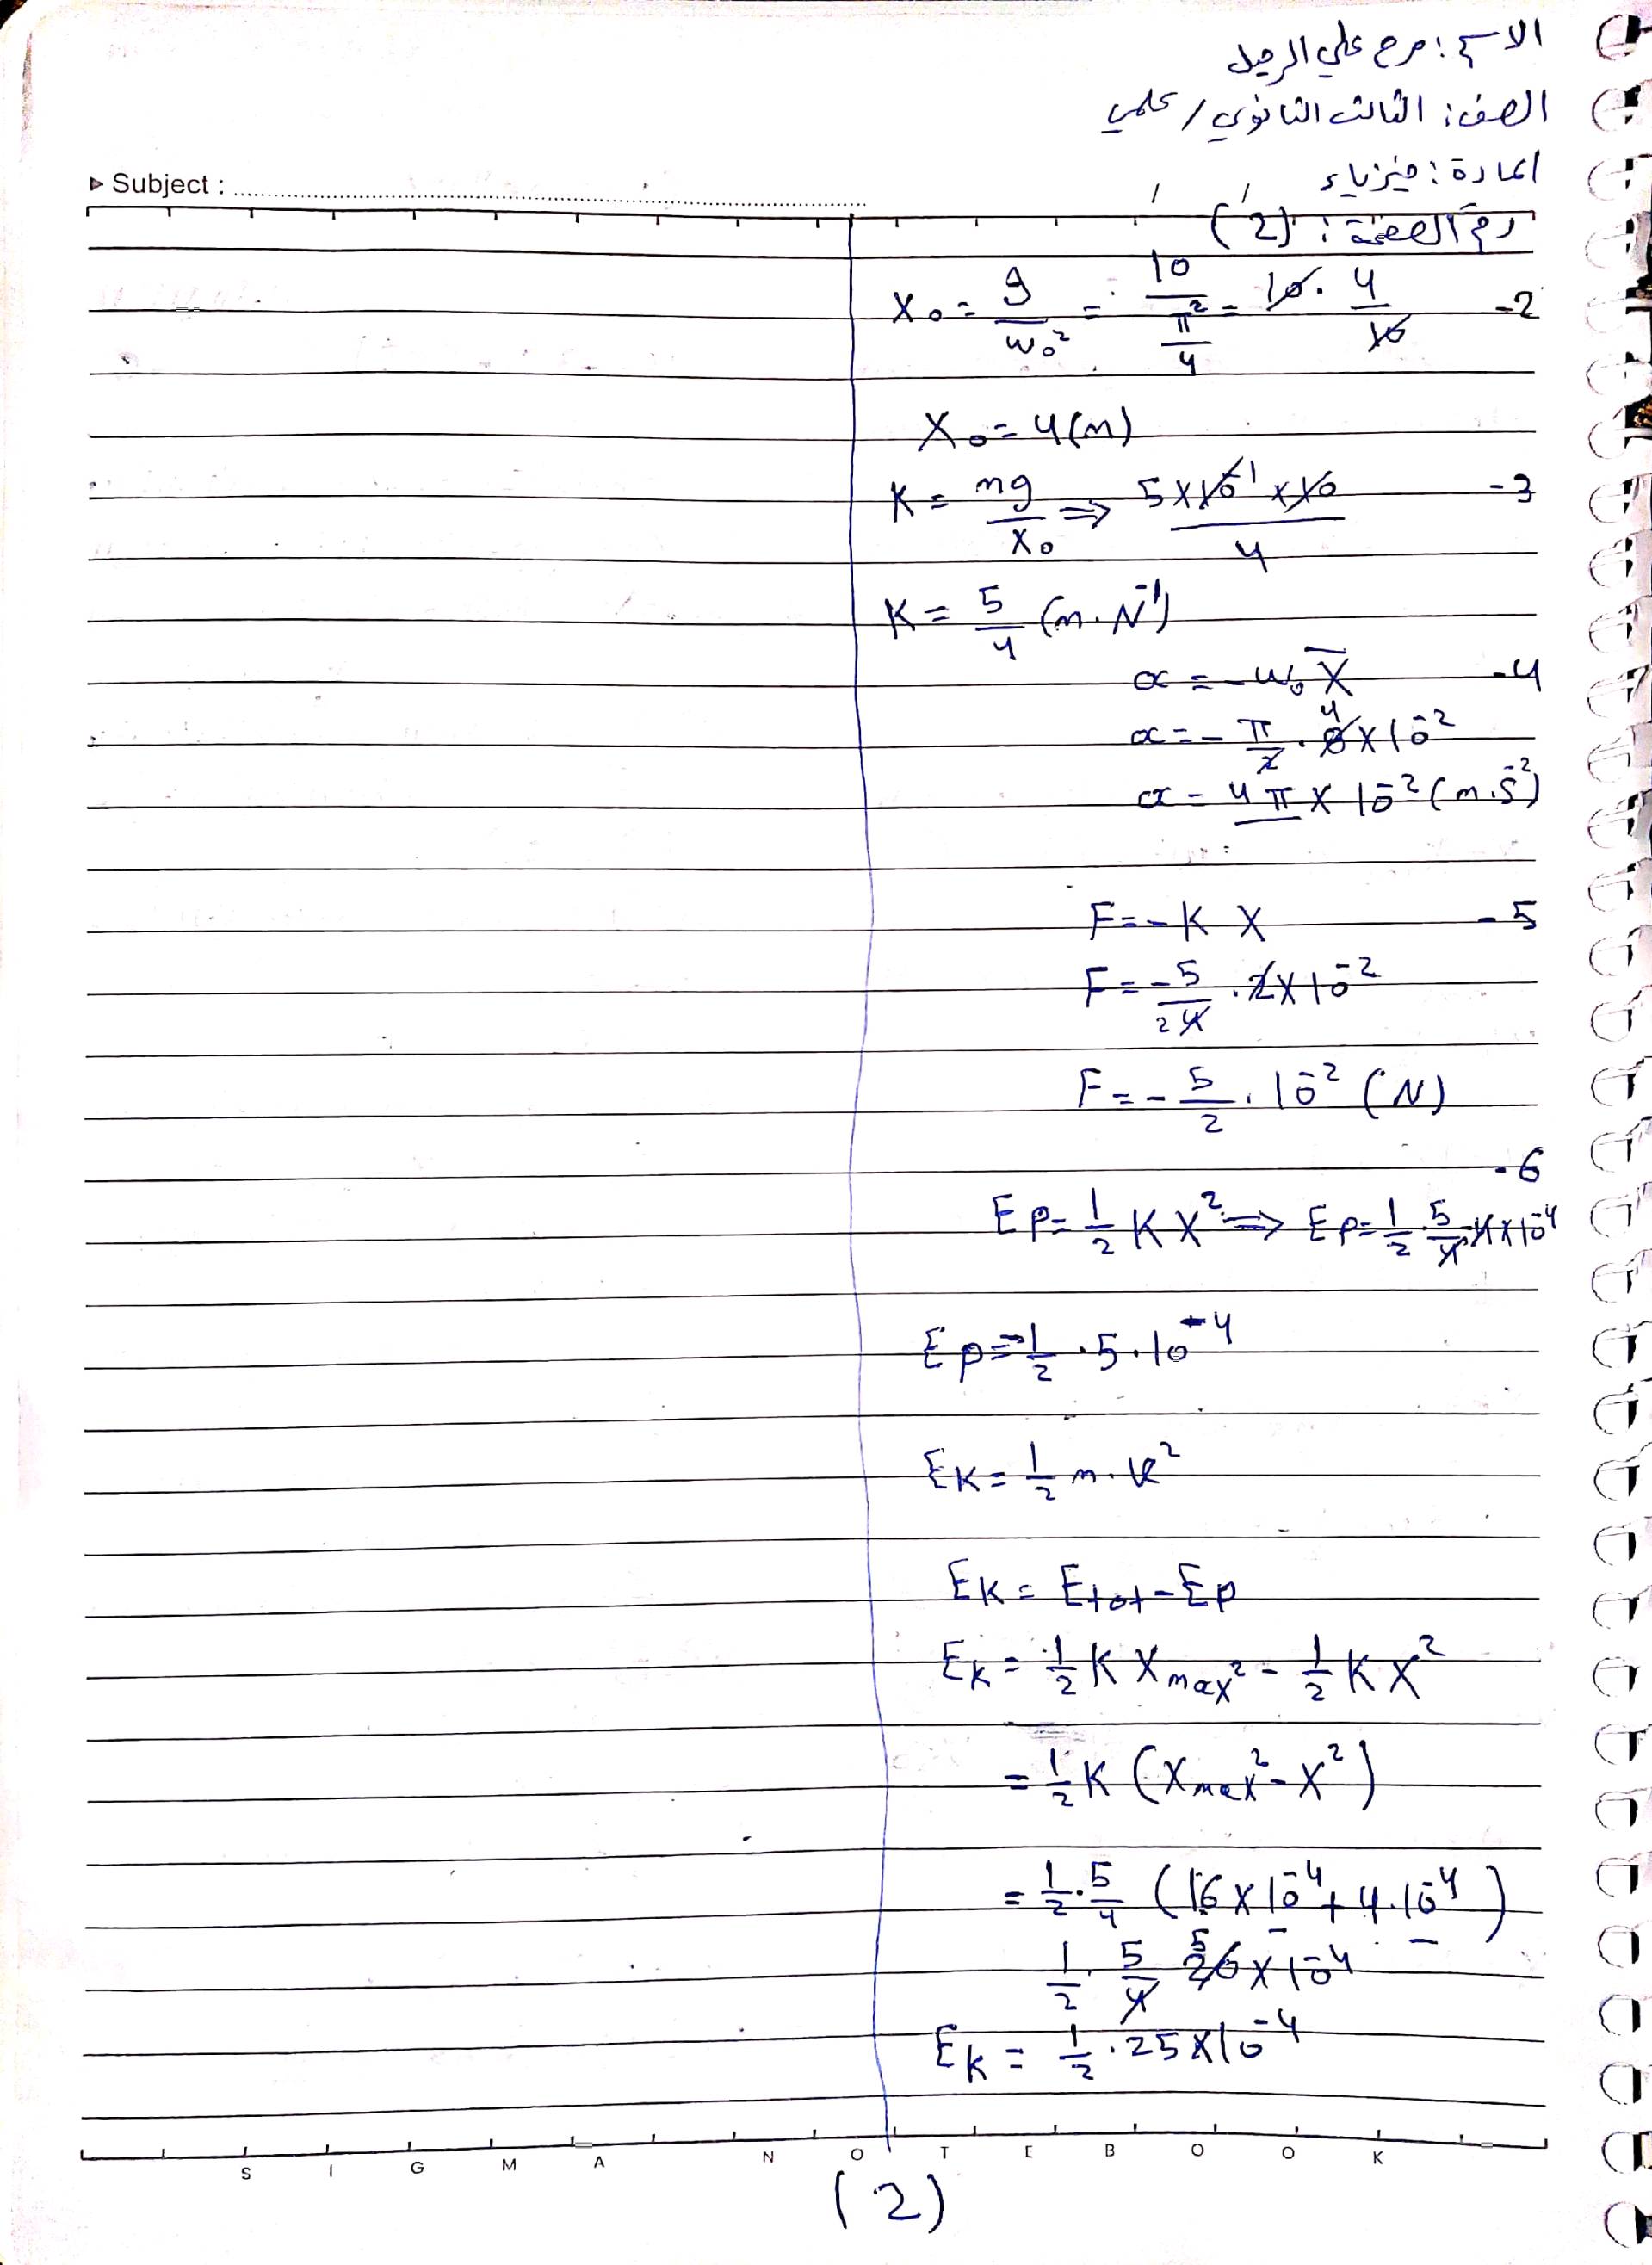 الاسم: مرح علي الرحيل
الصف: الثالث الثانوي / علمي
المادة: فيزياء
▸ Subject : ............
رقم الصفحة: (2)
-2 X₀ = g/ω₀² = 10/(π²/4) = 10 . 4/10
X₀ = 4 (m)
-3 K = mg/X₀ ⇒ 5×10⁻¹×10/4
K = 5/4 (m.N⁻¹)
-4 α = -ω₀ X̄
α = - π/2 . 8 4 ×10⁻²
α = 4π × 10⁻² (m.s⁻²)
-5 F = -K X
F = -5/4 2 . 2×10⁻²
F = - 5/2 . 10⁻² (N)
-6
Ep = 1/2 K X² ⇒ Ep = 1/2 . 5/4 . 4×10⁻⁴
Ep = 1/2 . 5 . 10⁻⁴
EK = 1/2 m . v²
EK = Etot - Ep
EK = 1/2 K Xmax² - 1/2 K X²
= 1/2 K (Xmax² - X²)
= 1/2 . 5/4 (16×10⁻⁴ + 4.10⁻⁴)
1/2 . 5/4 20 5 ×10⁻⁴
EK = 1/2 . 25×10⁻⁴
S I G M A N O T E B O O K
(2)